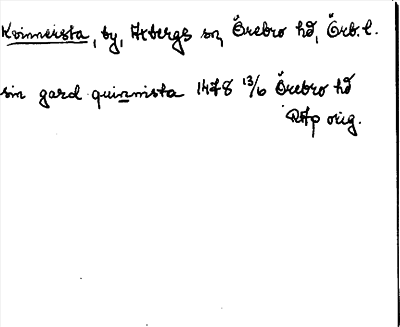 Kvinnersta, by, Axbergs sn, Örebro hd, Örb. l.
sin gard quinnista 1478 13/6 Örebro hd
RAp orig.